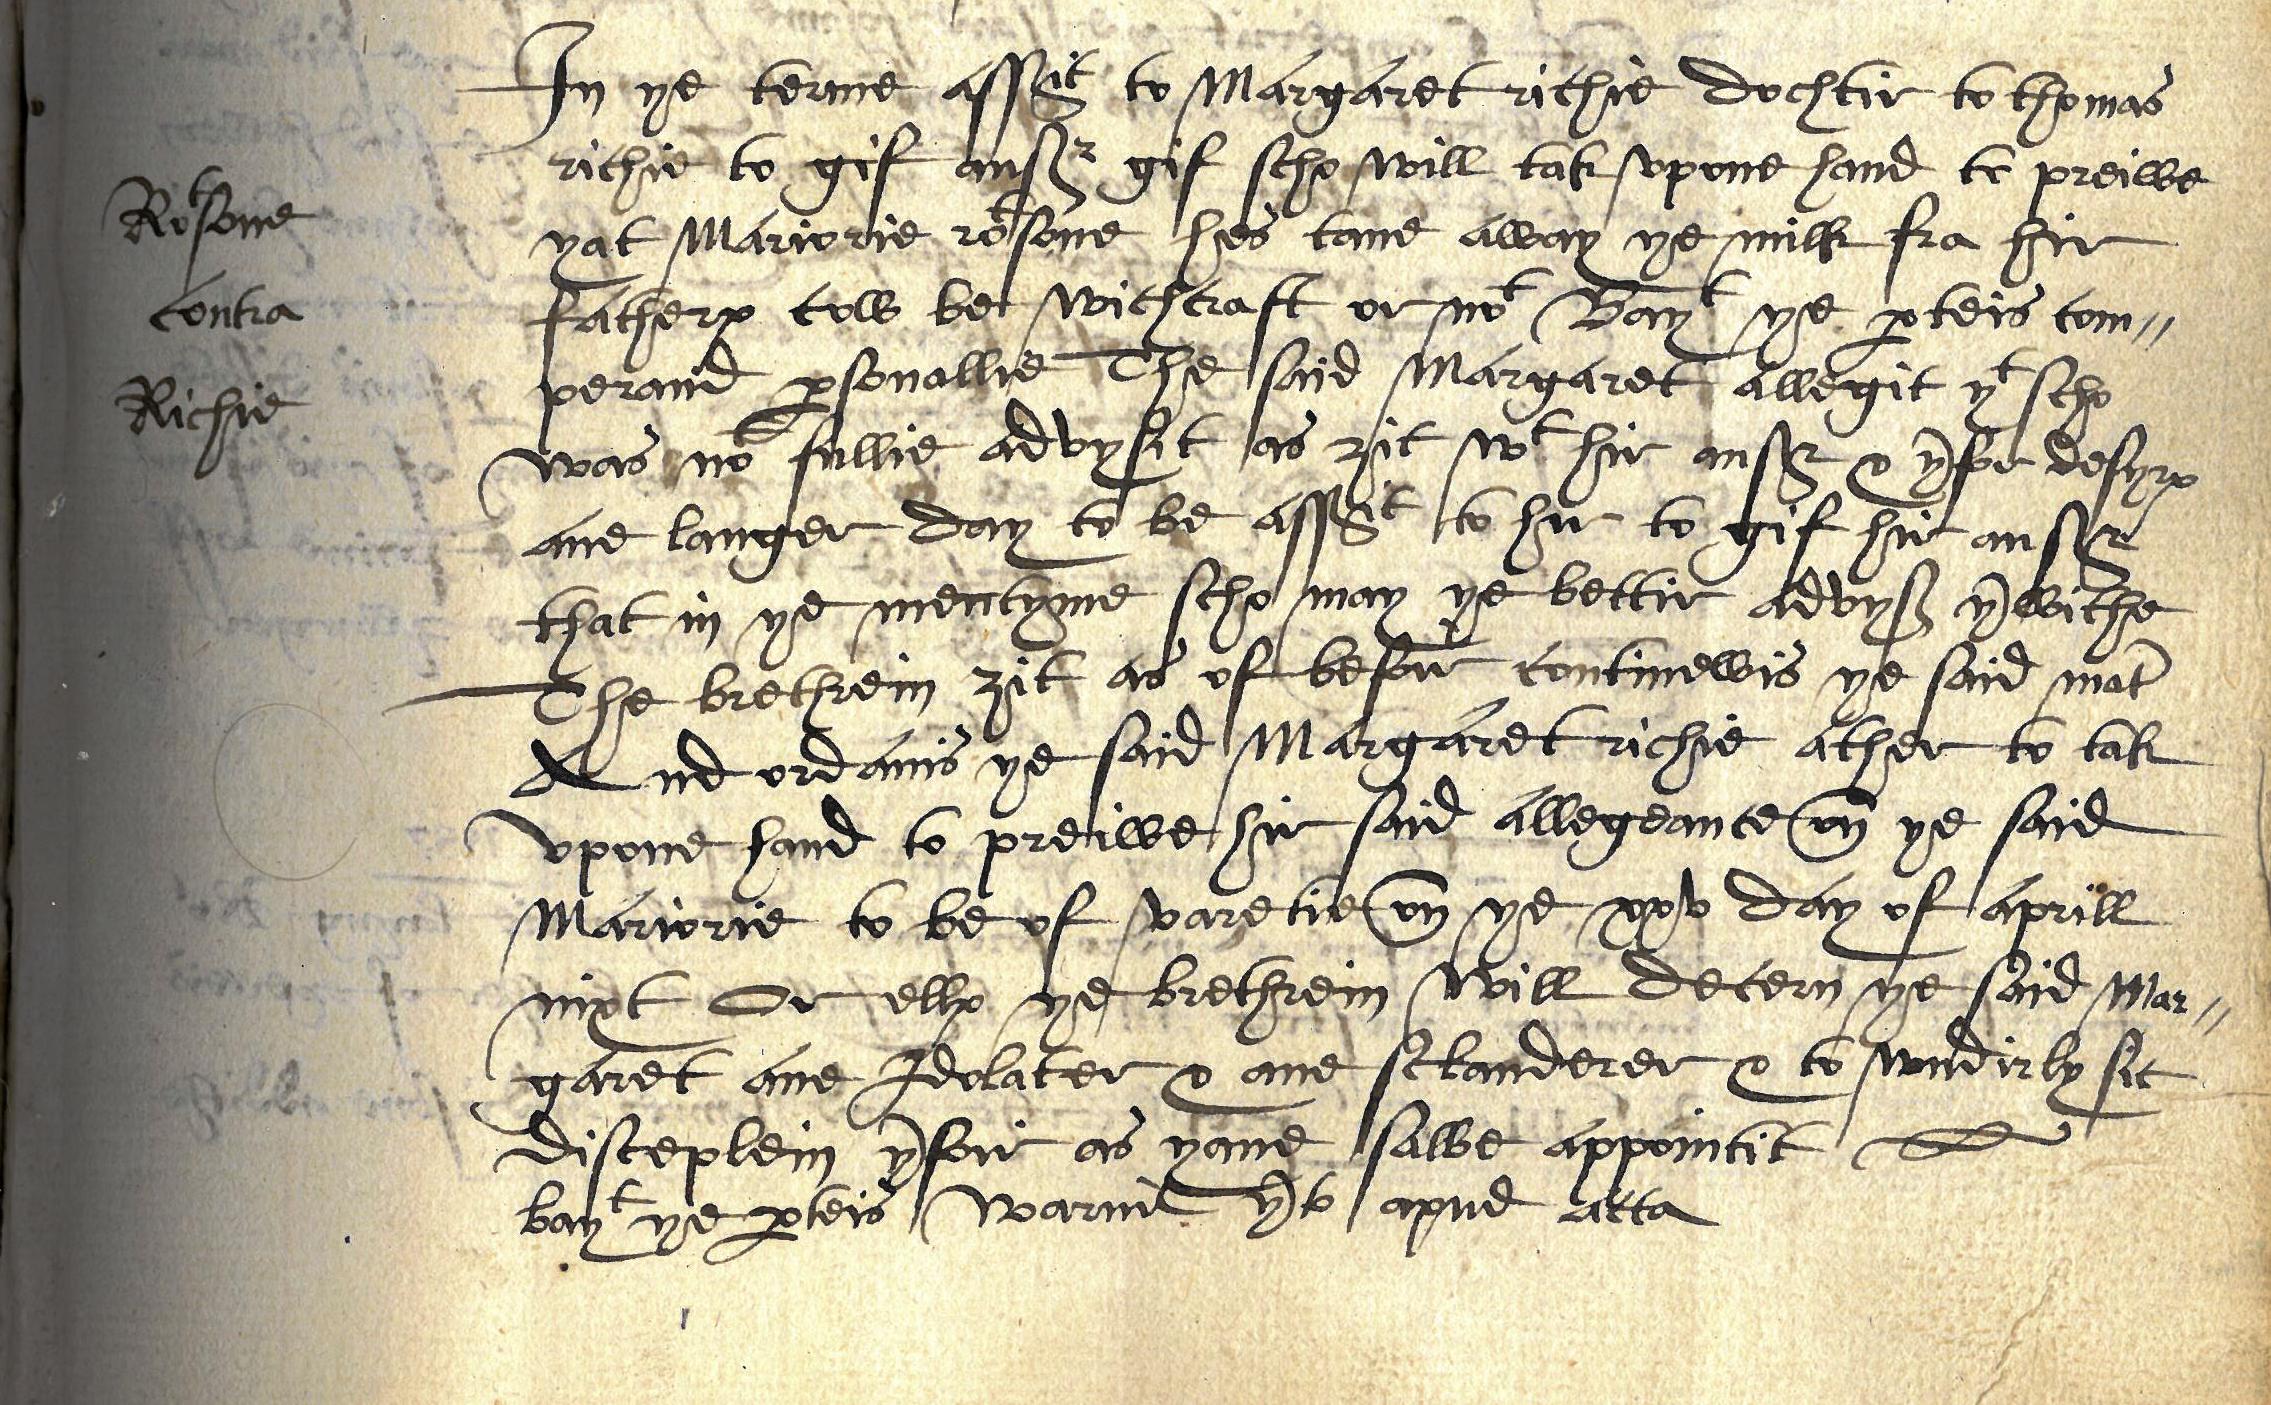 Rotsone
contra
Richie
In ye terme assit to Margaret richie dochtir to thomas
richie to gif ansr gif scho will tak upone hand to preiwe
yat Mariorie rotsone hes tane away ye milk fra hir
fatheris cow be witchcraft or not Bayt ye pteis com//
perand psonallie The said Margaret allegit yt scho
was not fullie advysit as zit wt hir ansr & yfor desyris
ane langer day to be assit to hir to gif hir ansr
that in ye mentyme scho may ye bettir advyß ywithe
The brethrein zit as of befoir continewis ye said matr
And ordanis ye said Margaret richie ather to tak
upone hand to preiwe hir said allegeance on ye said
Mariorie to be of varetie on ye xxv day of aprill
nixt Or ellis ye brethrein will decern ye said Mar//
garet ane Idolater & ane sclanderer & to undirly sic
disceplein yfoir as yane salbe appointit
bayt ye pteis warnit yto apud acta